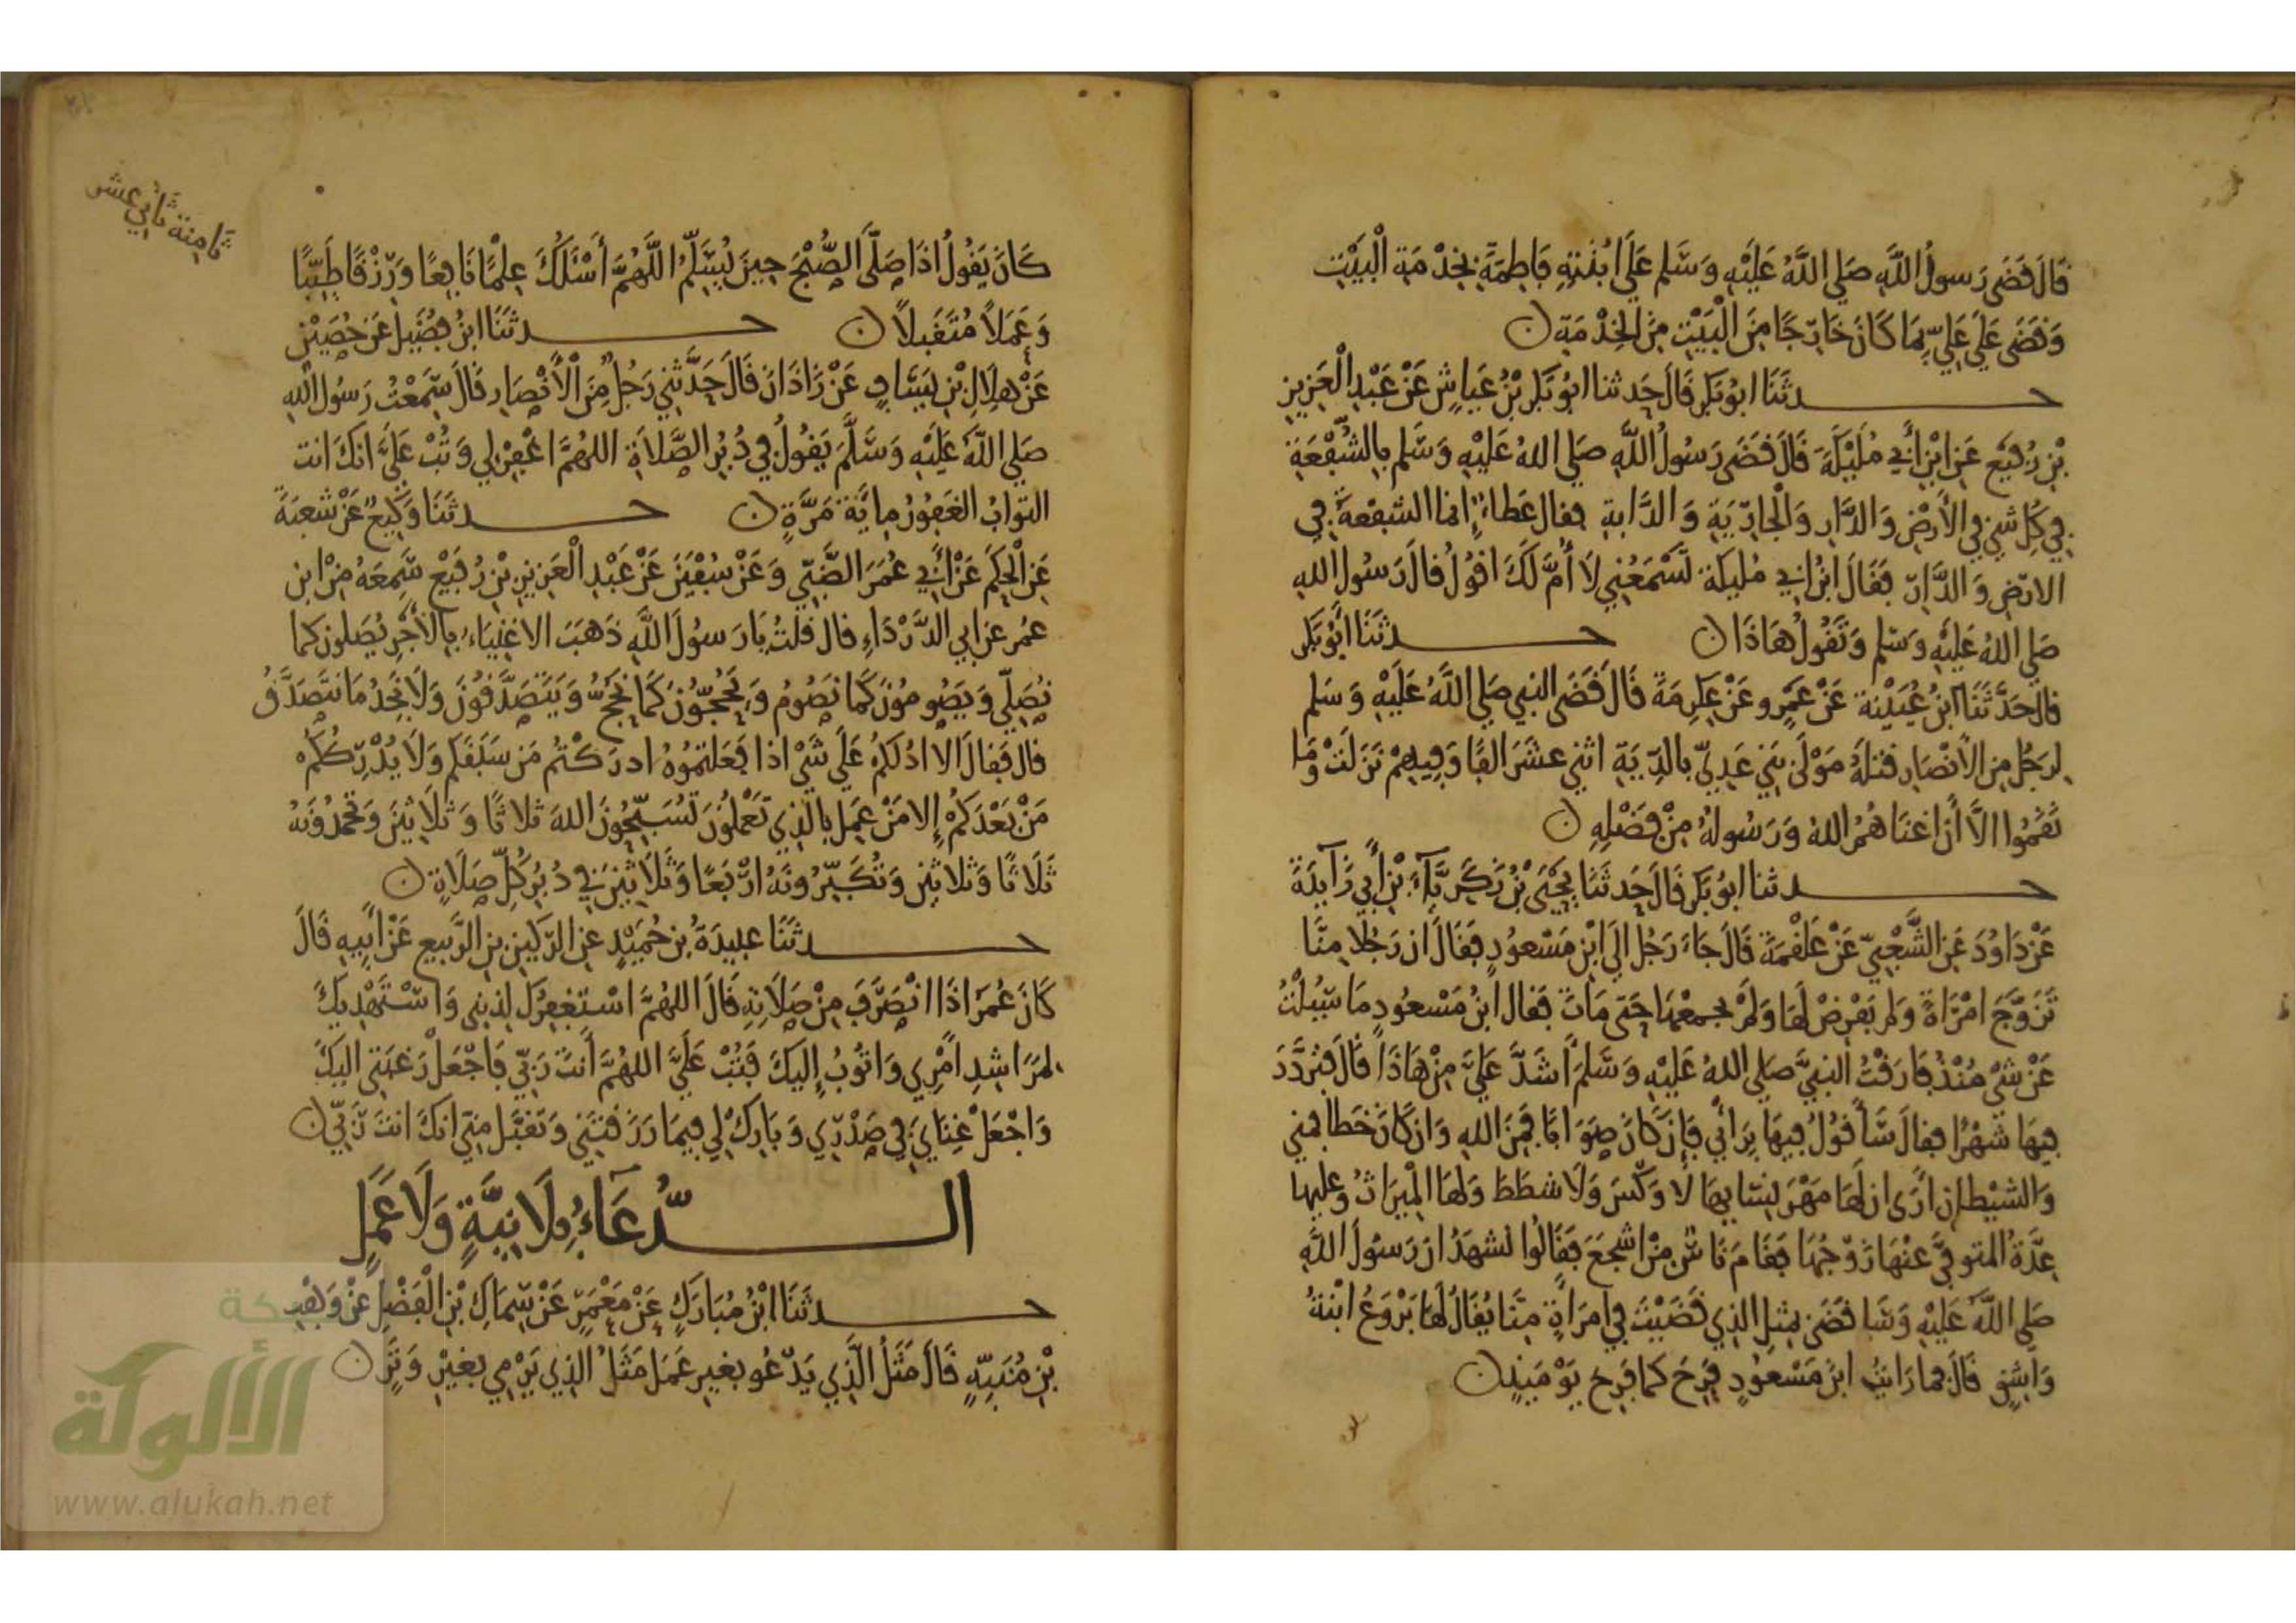 قَالَ قَضَى رَسولُ اللَّهِ صَلى اللَّهُ عَلَيْهِ وَسَلم عَلَى ابْنَتِهِ فَاطِمَةَ بخِدْمَةِ الْبَيْتِ
وَقَضَى عَلَى عَلِيٍّ بِمَا كَانَ خَارِجًا مِنَ الْبَيْتِ مِنَ الخِدْمَةِ ن
حدثَنَا ابوُ بَكر قَالَ حَدثنا ابوُ بَكر بْنُ عَياشٍ عَنْ عَبْدِ الْعَزِيزِ
بْنِ رُفَيْع عَنِ ابْنِ أَبي مُلَيْكَةَ قَالَ قَضَى رَسُولُ اللَّهِ صَلى اللهُ عَلَيْهِ وَسَلم بِالشُّفْعَةِ
فِي كُلِ شيْءٍ فِي الأَرْضِ وَالدَّارِ وَالْجَارِيَةِ وَالدَّابةِ فقال عَطاءٌ إنما الشفْعةُ فِي
الارْضِ وَالدَّارِ فَقَالَ ابْنُ ابي مُليكة تَسْمَعُنِي لَا أُمَّ لَكَ اقُولُ قالَ رَسُولُ اللهِ
صَلى اللهُ عَلَيْهِ وَسَلم وَتَقُولُ هَاذَا ن حدثَنَا ابَوُ بَكر
قالَ حَدَّثَنَا ابنُ عُيَيْنة عَنْ عَمْرٍو عَنْ عِكرِمَةَ قَالَ قَضَى النبي صَلى اللَّهُ عَلَيْهِ وَسَلم
لِرَجُلٍ مِنَ الأَنْصَارِ قتلَهُ مَوْلَى بَنِي عَدِيٍّ بالدِّيَةِ اثني عشَرَ الفًا وَفِيهِمْ نَزَلَتْ وَمَا
نَقَمُوا الاَّ أَنْ اغنَاهُمُ اللهُ وَرَسُولهُ مِنْ فَضْلِهِ ن
حدثنا ابوُ بَكر قَالَ حَدثَنَا يَحْيَى بْنُ زَكَرِيَّآءَ بْنِ أَبِي زَآيِدَةَ
عَنْ دَاوُدَ عَنِ الشَّعْبِيِّ عَنْ عَلْقَمَةَ قَالَ جَاءَ رَجُل الَى ابْنِ مَسْعودٍ فَقَالَ ان رَجُلا مِنَّا
تَزَوَّجَ امْرَاةً وَلم يَفْرِضْ لَهَا وَلَمْ يجمعْهَا حَتى مَاتَ فَقال ابنُ مَسْعُودٍ مَا سُيِلْتُ
عَنْ شَيْ مُنْذُ فَارَقْتُ النبيَّ صَلى اللهُ عَلَيْهِ وَسَلمَ أَشَدَّ عَلَيَّ مِنْ هَاذَا قَالَ فتَرَدَّدَ
فِيهَا شَهْرًا فقالَ سَأَقُولُ فِيهَا بِرَأْيِي فَإِنْ كَانَ صَوَابًا فَمِنَ اللهِ وَانْ كَانَ خَطا فمِني
وَالشيْطانِ أَرَى ان لَهَا مَهْرَ نِسَايِهَا لَا وَكْسَ وَلَا شطَطَ وَلهَا الْمِيرَاثُ وَعليها
عِدَّةُ المتوفَّى عَنْهَا زَوْجُهَا فَقَامَ نَاسٌ مِنْ اشْجَعَ فَقَالُوا نَشهَدُ ان رَسُولَ اللَّهِ
صَلى اللَّهُ عَليْهِ وَسَلم قَضَى بمثلِ الذِي قَضَيْتَ فِي امرَأَةٍ مِنَّا يُقَالُ لَهَا بَرْوَعُ ابْنةُ
وَاشِقٍ قَالَ فما رَايتُ ابنَ مَسْعُودٍ فَرِحَ كما فَرِح يَوْمَيِذٍ ن
ثامنة ثاني عشر
كَانَ يَقُولُ اذَا صَلَّى الصُّبْحَ حِينَ يُسَلِّمُ اللَّهُمَّ أَسْئَلُكَ عِلْمًا نَافِعًا وَرِزْقًا طَيِّبًا
وَعَمَلاً مُتَقَبلاً ن حدثَنَا ابنُ فُضَيل عَنْ حُصَيْنٍ
عَنْ هِلَالِ بْنِ يَسَافٍ عَنْ زَاذَانَ قَالَ حَدَّثَنِي رَجُلٌ مِنَ الْأَنْصَارِ قَالَ سَمِعْتُ رَسُول اللهِ
صَلى اللَّهُ عَلَيْهِ وَسَلَّمَ يَقُولُ فِي دُبُرِ الصَّلاَةِ اللهُمَّ اغْفِرْ لِي وَتُبْ عَلَيَّ انكَ انت
التوابُ الغَفِوُرُ مِايَة مَرَّةٍ ن حدثَنَا وَكِيعٌ عَنْ شعبَةَ
عَنِ الْحَكَمِ عَنْ أَبِي عُمَرَ الضَّبِّي وَعَنْ سُفْيَنَ عَنْ عَبْدِ الْعَزِيزِ بْنِ رُفَيْعٍ سَمِعَهُ مِنْ ابنِ
عمُر عن ابي الدَّرْدَاءِ قال قلتُ يَارَسولَ اللَّهِ ذَهَبَ الاغْنِيَاءُ بِالأَجْرِ يُصَلونَ كما
نُصَلِّي وَيَصُومُونَ كَمَا نَصُومُ وَيَحُجُّونَ كَمَا نَحُجُّ وَيَتَصَدَّقُونَ وَلَا نَجِدُ مَا نَتَصَدَّقُ
قال فَقالَ الا ادُلكُمْ عَلَى شَيْ اذا فَعَلتمُوُهُ ادرَكْتُم مَن سَبَقَكم وَلَا يُدْرِككُمْ
مَنْ بَعْدَكُمْ إلا مَنْ عَمِلَ بالَّذِي تَعْمَلُونَ تُسَبِّحُونَ اللهَ ثلاثًا وَثلَاثِينَ وَتَحْمَدُوَنهُ
ثَلَاثًا وَثلاثِينَ وَتُكَبِّرُونَهُ ارْبَعًا وَثَلَاثِينَ فِي دُبُرِ كُلِّ صَلَاةٍ ن
حدثَنَا عَبِيدَةُ بن حُمَيْدٍ عن الرّكَيْنِ بن الرَّبيع عَنْ أَبِيهِ قَالَ
كَانَ عُمَرَ اذَا انْصَرَفَ مِنْ صَلَاتِهِ قَالَ اللهُمَّ اسْتغفِرُكَ لِذنبي وَاسْتَهْدِيكَ
لمَرَاشِدِ أَمْرِي وَاتُوبُ إِليكَ فَتُبْ عَلَيَّ اللهُمَّ أَنتَ رَبِّي فَاجْعَلْ رَغبَتي اليكَ
وَاجْعَلْ غِنَايَ فِي صَدْرِي وَبَارِكْ لِي فِيمَا رَزَقتَنِي وَتقبَّل مِنِّي انكَ انتَ رَبِّي ن
الدُّعَاءُ بِلَا نِيَّةٍ وَلَا عَمَلٍ
حدثَنَا ابْنُ مُبَارَكٍ عَنْ مَعْمَرٍ عَنْ سِمَاكِ بْنِ الْفَضْلِ عَنْ وَهْبِ
بْنِ مُنَبِّهٍ قَالَ مَثَلُ الَّذِي يَدْعُو بغيرِ عَمَل مَثَلُ الذِي يَرْمِي بغيْرِ وَتَرٍ ن
شبكة
الألوكة
www.alukah.net